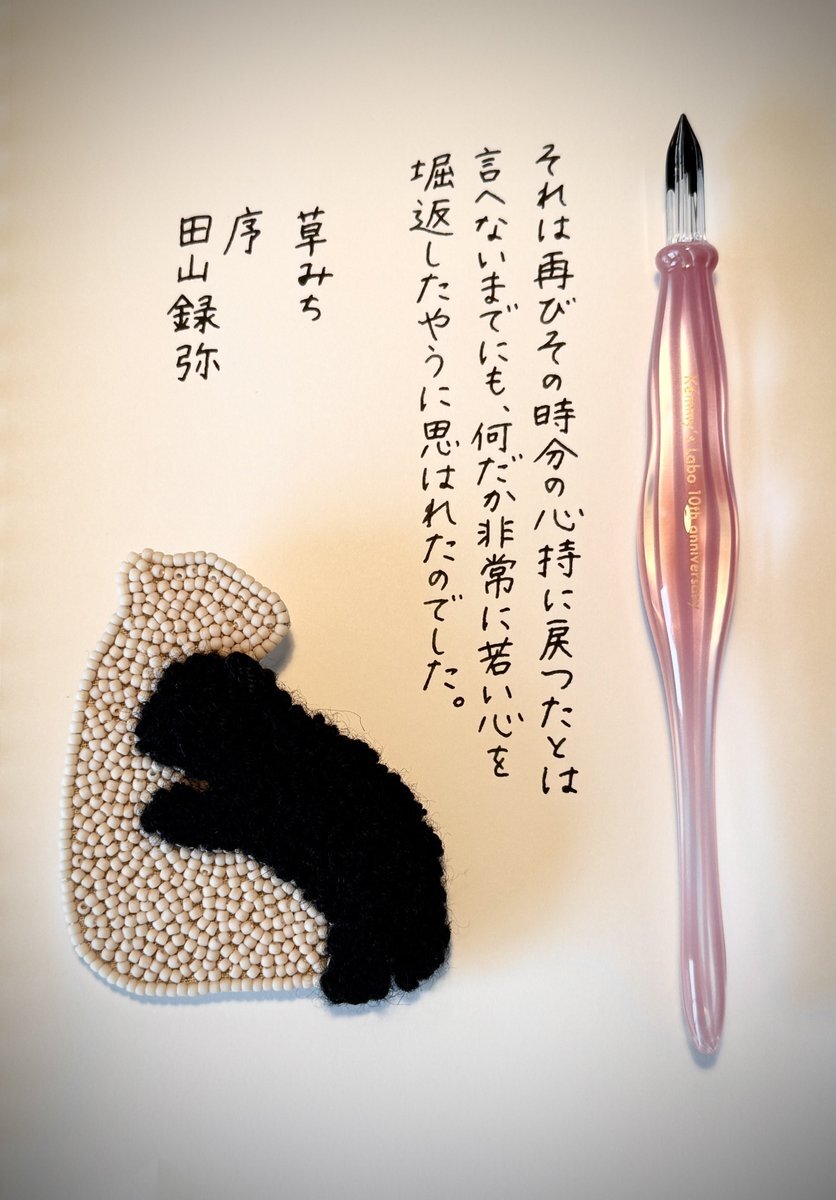 それは再びその時分の心持に戻つたとは
言へないまでにも、何だか非常に若い心を
堀返したやうに思はれたのでした。
草みち
序
田山録弥
Kemmy's Labo 10th anniversary